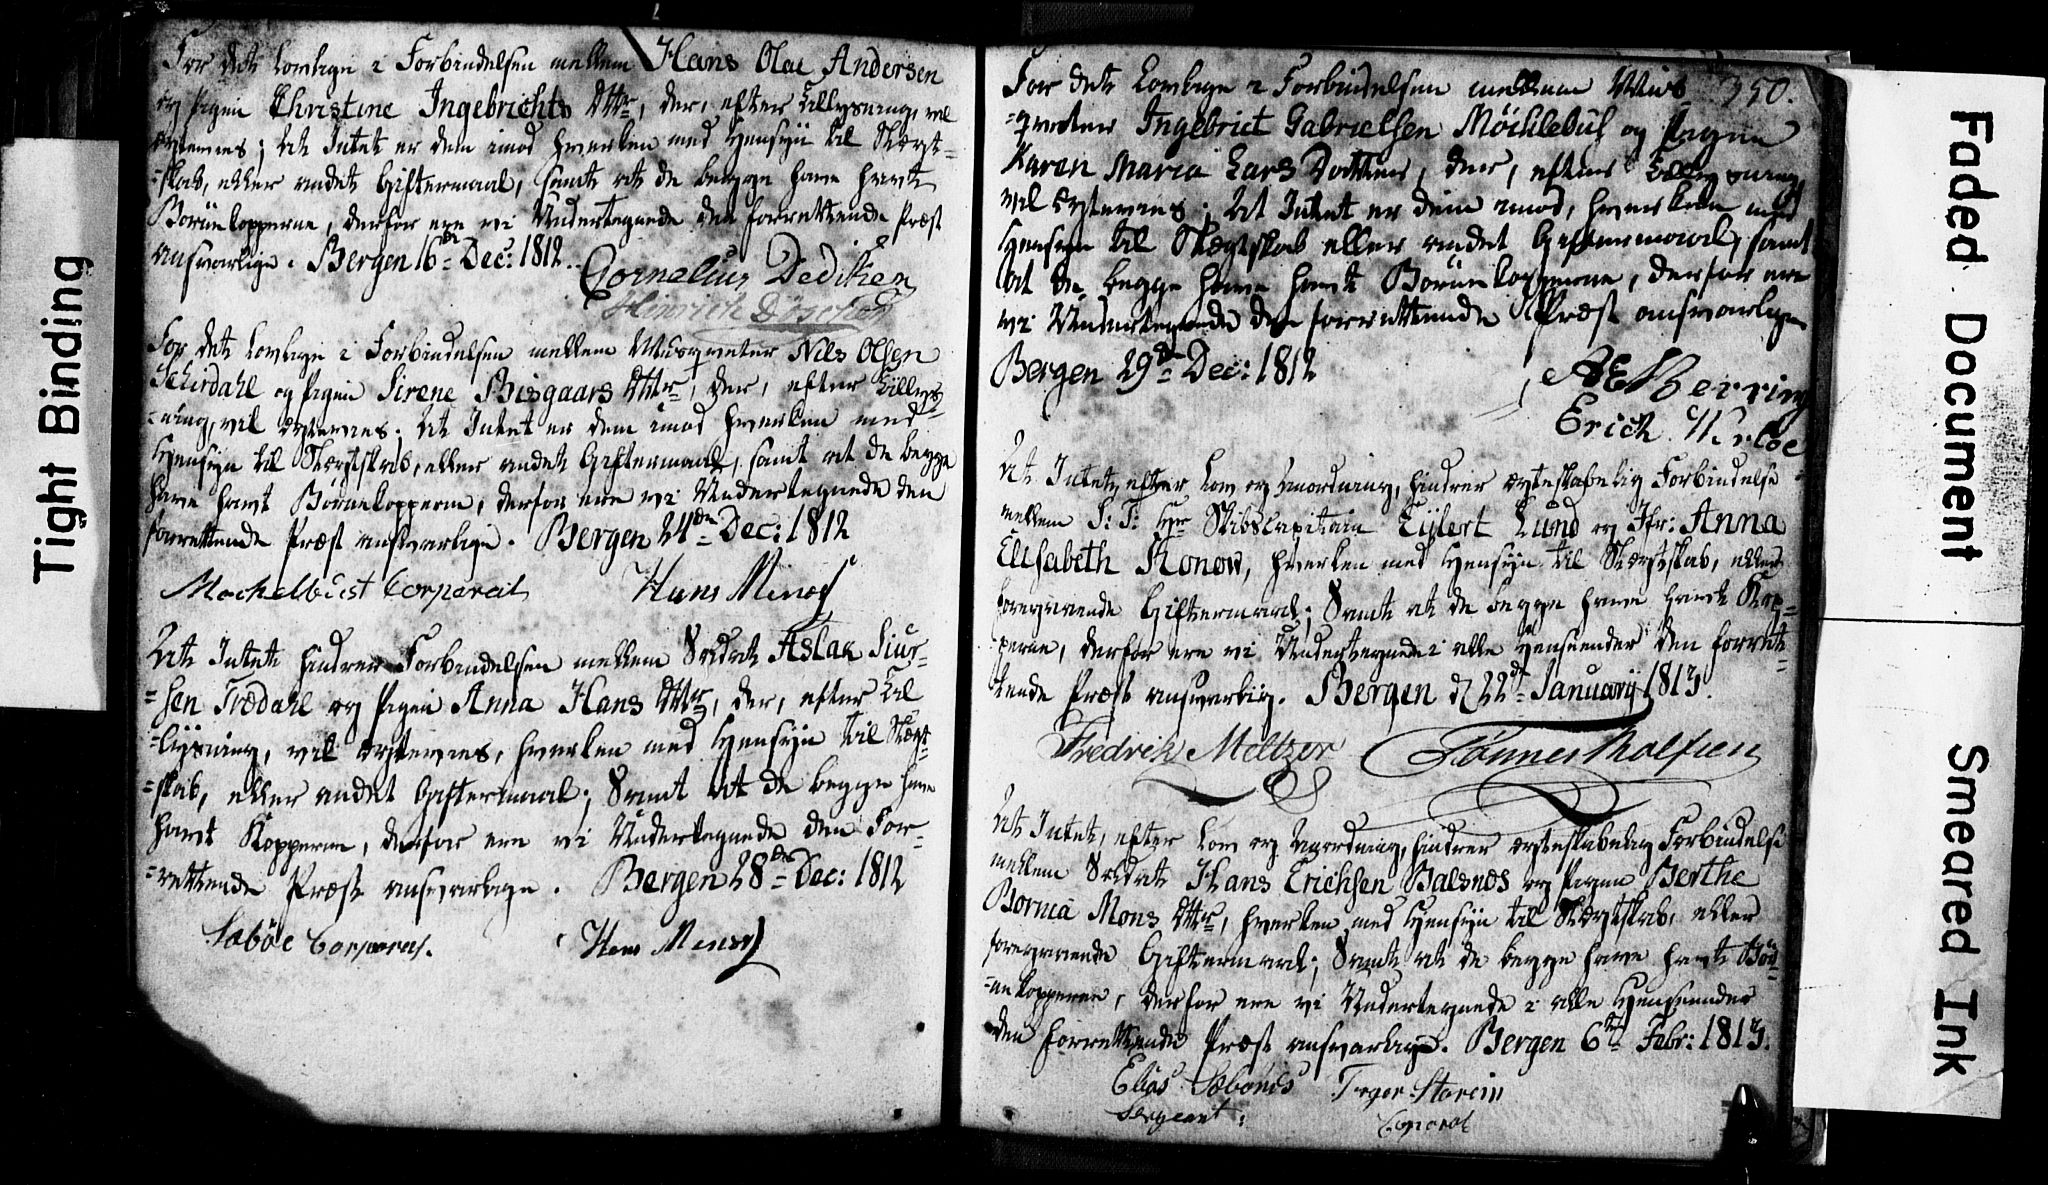 For det Lovlige i Forbindelsen mellem Hans Olai Andersen
og Pigen Christine Ingebrichts Dttr, der, efter Tillysning, vil
ægtevies; At Intet er dem imod hverken med Hensyn til Slægt-
=skab, eller andet Giftermaal, samt at de begge have havt
Børnekopperne, derfor ere vi Undertegnede den forrettende Præst
ansvarlige. Bergen 16de Dec: 1812.
Cornelius Dediken
Hinrich Döscher
For det Lovlige i Forbindelsen mellem Musqveter Nils Olsen
Schirdahl og Pigen Sirene Bisgaars Dttr, der, efter Tillys-
=ning, vil ægtevies; At Intet er dem imod hverken med
Hensyn til Slægtskab, eller andet Giftermaal, samt at de begge
have havt Børnekopperne, derfor ere vi Undertegnede den
forrettende Præst ansvarlige. Bergen 24de Dec: 1812
Mochelbust Corporal Hans Minos
At Intet hindrer Forbindelsen mellem Soldat Aslak Siur-
=sen Trædahl og Pigen Anna Hans Dttr, der, efter Til
=lysning, vil ægtevies, hverken med Hensyn til Slægt-
=skab, eller andet Giftermaal; Samt at de begge have
havt Kopperne, derfor ere vi Undertegnede den For-
=rettende Præst ansvarlige. Bergen 28de Dec: 1812
Sæböe Corporal. Hans Minos
350.
For det Lovlige i Forbindelsen mellem Mus-
=qveteer Ingebrict Gabrielsen Möchlebust og Pigen
Karen Maria Lars Datter, der, efter Tillysning,
vil ægtevies; At Intet er dem imod, hverken med
Hensyn til Slægtskab eller andet Giftermaal, samt
at de begge have havt Børnekopperne, derfor ere
vi Undertegnede den forrettende Præst ansvarlige
Bergen 29de Dec: 1812
Erich
At Intet, efter Lov og Anordning, hindrer ægteskabelig Forbindelse
mellem S: T: Hr Skibscapitain Eilert Lund og Jfr: Anna
Elisabeth Konow, hverken med Hensyn til Slægtskab, eller
foregaaende Giftermaal; Samt at de begge have havt Kop-
=perne, derfor ere vi Undertegnede i alle Henseender den forret-
tende Præst ansvarlig. Bergen d 22de Januarij 1813.
Fredrik Meltzer Tönnes Rolfsen
At Intet, efter Lov og Anordning, hindrer ægteskabelig Forbindelse
mellem Soldat Hans Erichsen Balsnes og Pigen Berthe
Bornia Mons Dttr, hverken med Hensyn til Slægtskab, eller
foregaaende Giftermaal; Samt at de begge have havt Bør-
=nekopperne, derfor ere vi Undertegnede i alle Henseender
den forrettende Præst ansvarlige. Bergen 6te Febr: 1813.
Elias Sæbönes
Sergeant: Corporal
Tight Binding
Faded Document
Smeared Ink